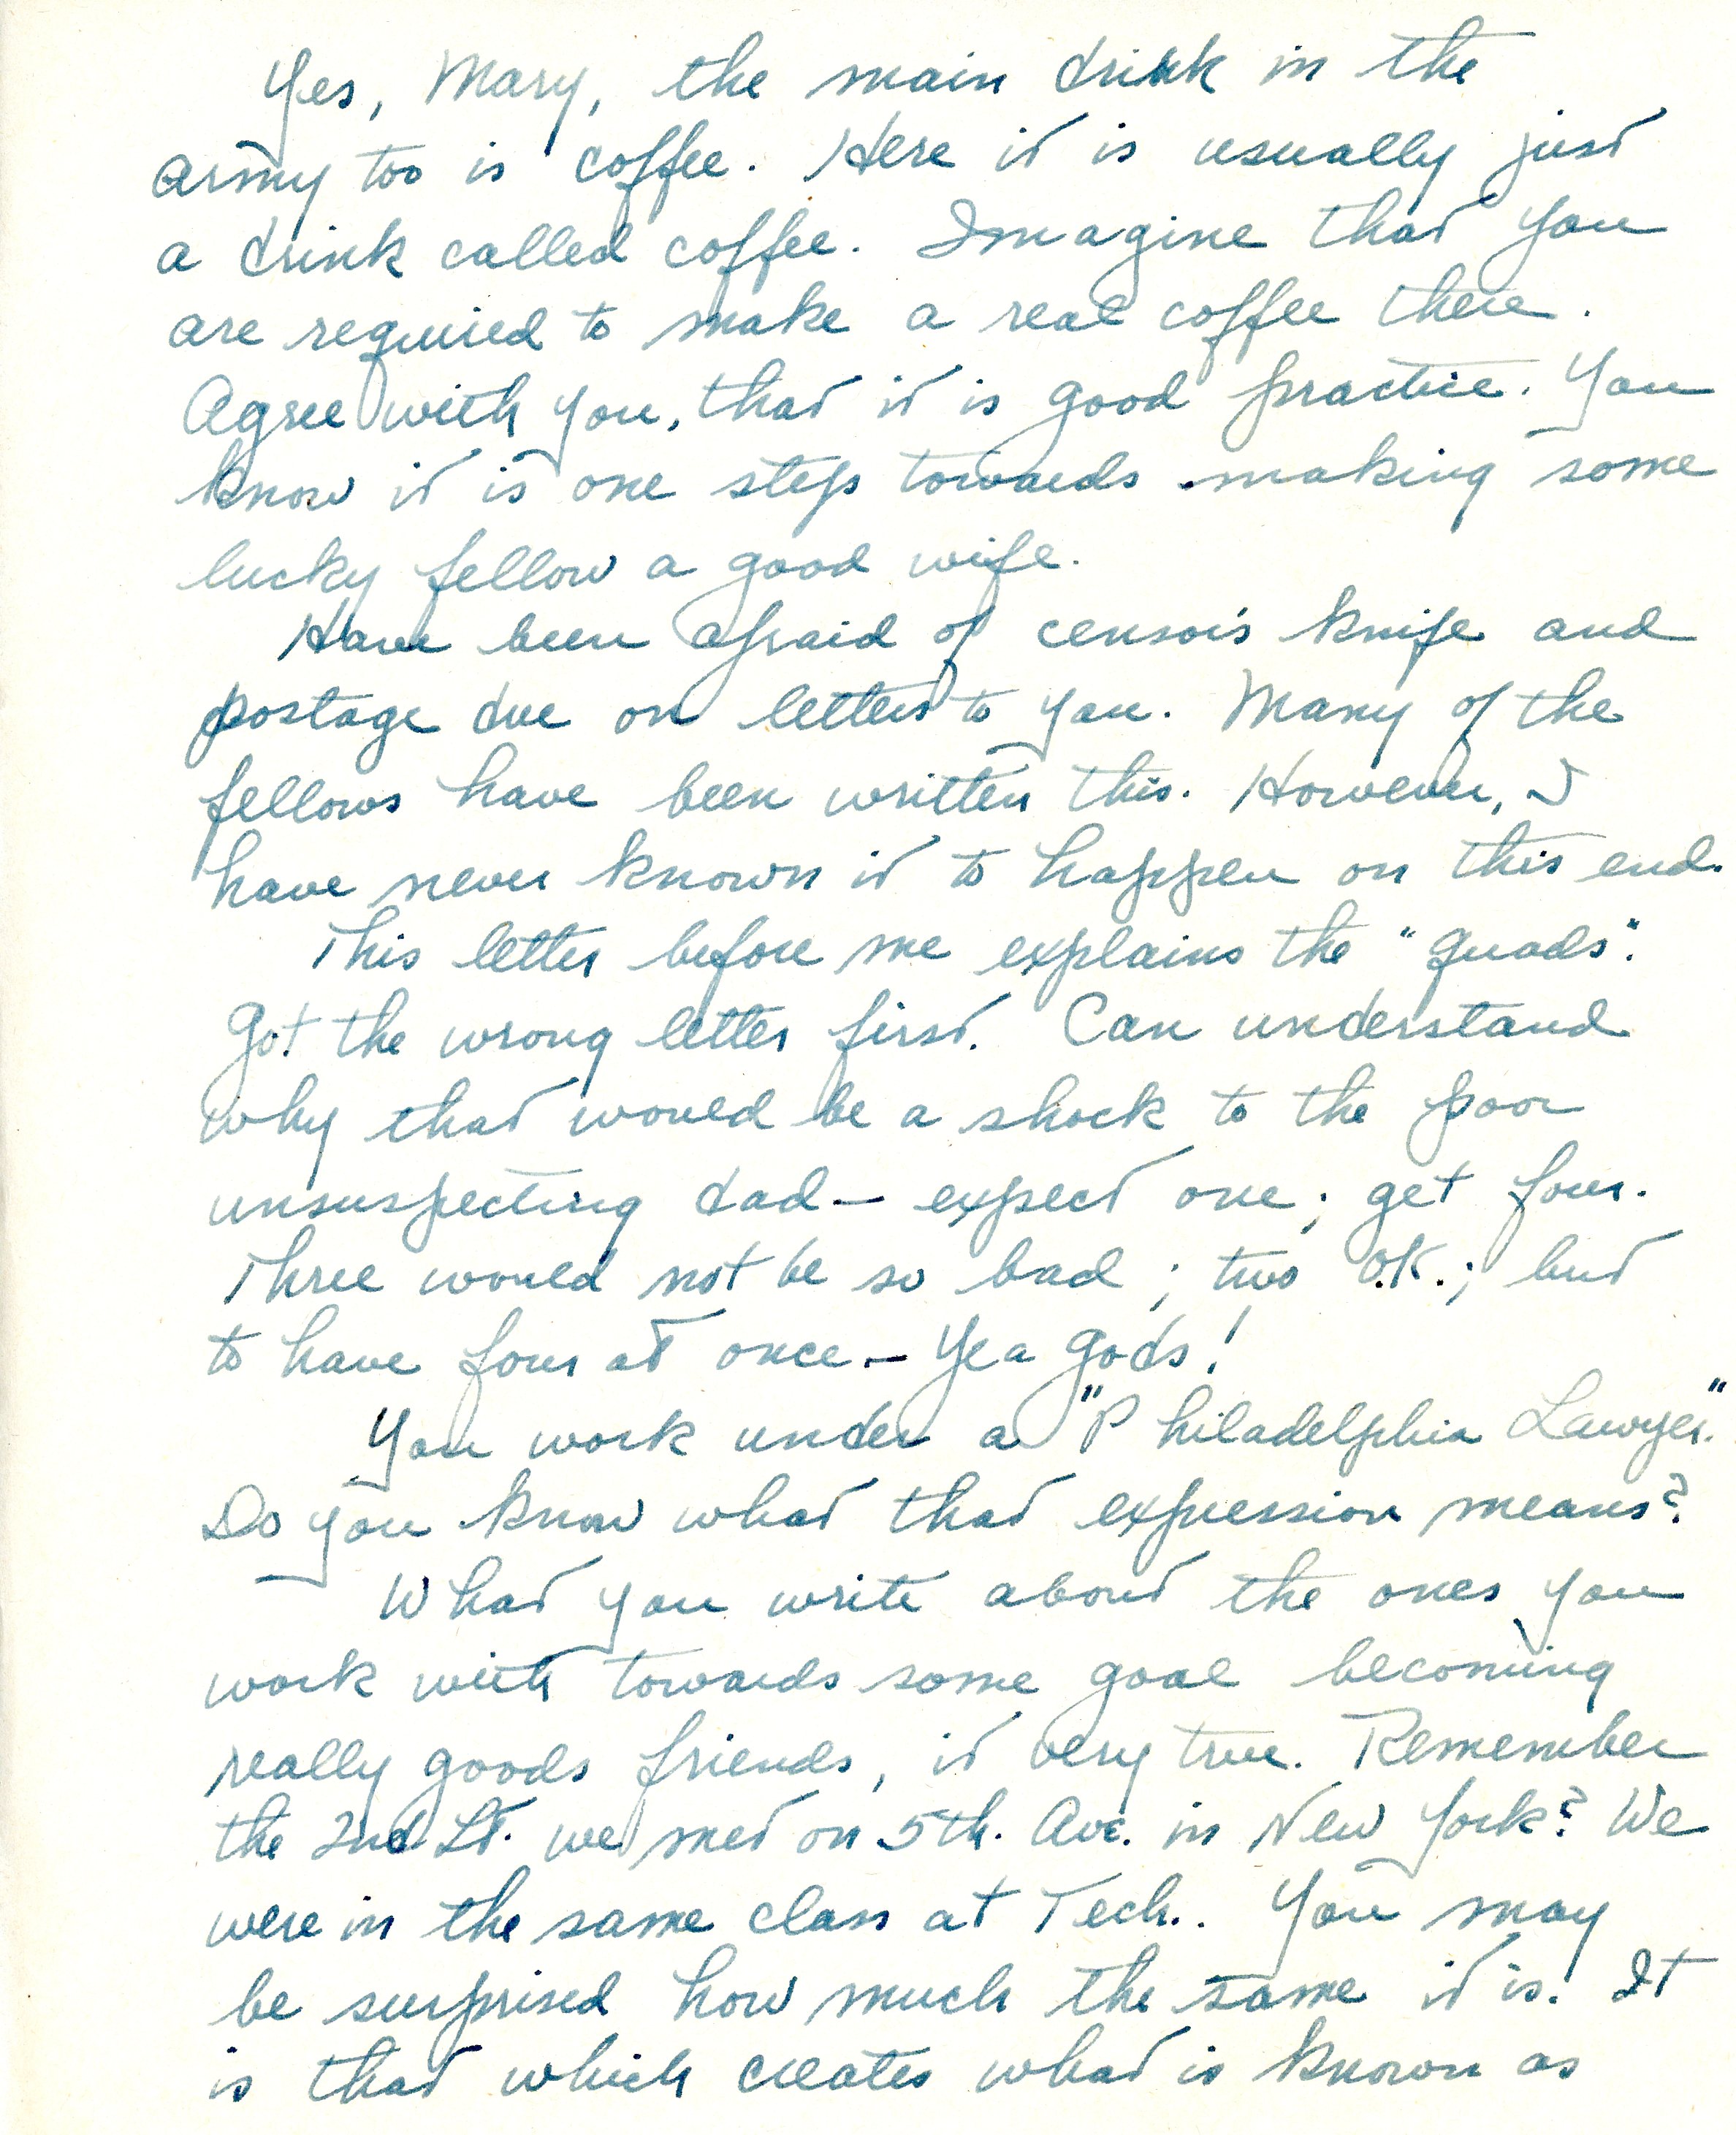 Yes, Mary, the main drink in the
army too is coffee. Here it is usually just
a drink called coffee. Imagine that you
are required to make a real coffee there.
Agree with you, that it is good practice. You
know it is one step towards making some
lucky fellow a good wife.
Have been afraid of censor's knife and
postage due on letters to you. Many of the
fellows have been written this. However, I
have never known it to happen on this end.
This letter before me explains the "quads".
Got the wrong letter first. Can understand
why that would be a shock to the poor
unsuspecting dad - expect one; get four.
Three would not be so bad; two O.K.; but
to have four at once - Yea gods!
You work under a "Philadelphia Lawyer."
Do you know what that expression means?
What you write about the ones you
work with towards some goal becoming
really goods friends, it very true. Remember
the 2nd Lt. we met on 5th. Ave. in New York? We
were in the same class at Tech.. You may
be surprised how much the same it is! It
is that which creates what is known as